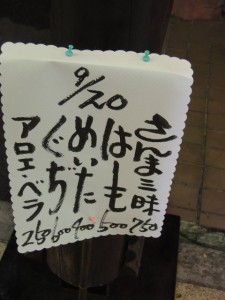 9/20
さんま三昧
はも
めいた
ぐち
アロエベラ
250 600 400 500 750